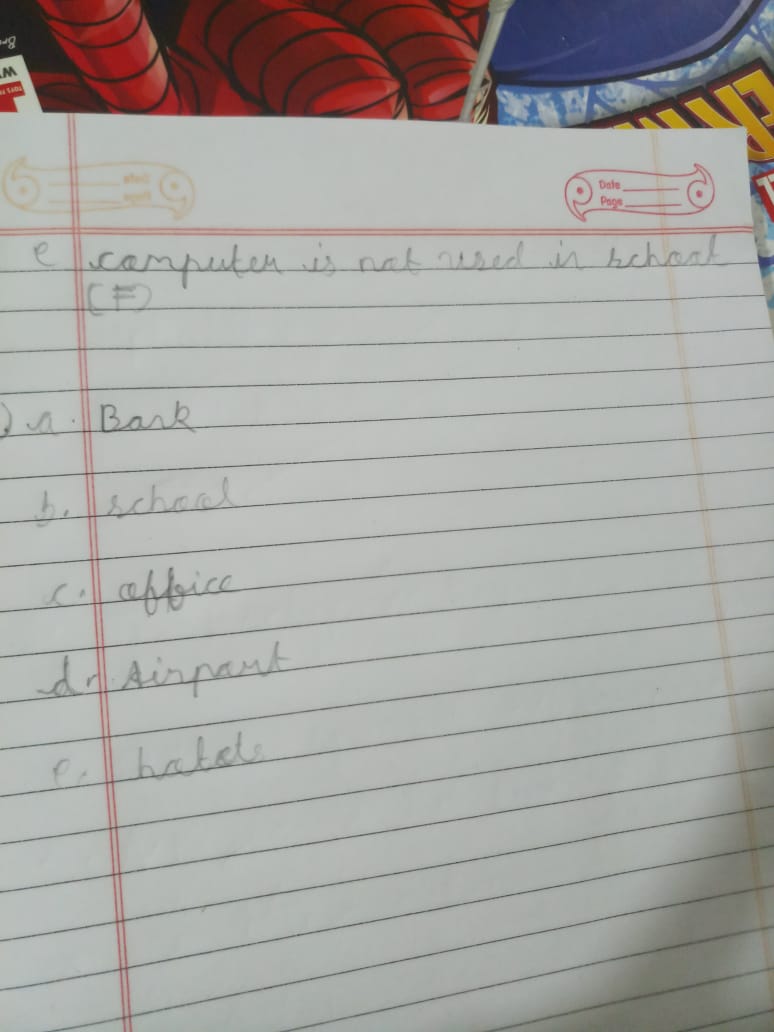 Date
Page
e computer is not used in school
(F)
) a. Bank
b. school
c. office
d. Airport
e. hotels